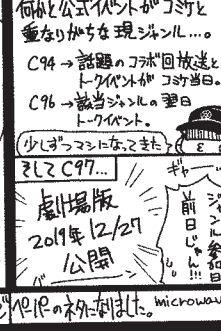 何かと公式イベントがコミケと
重なりがちな現ジャンル…。
C94→話題のコラボ回放送と
トークイベントがコミケ当日。
C96→該当ジャンルの翌日
トークイベント。
少しずつマシになってきた
そしてC97…
劇場版
2019年12/27
公開
バーン
ギャー
ジャンル参加日
前日じゃん!!!
ペーパーのネタになりました。
microwav